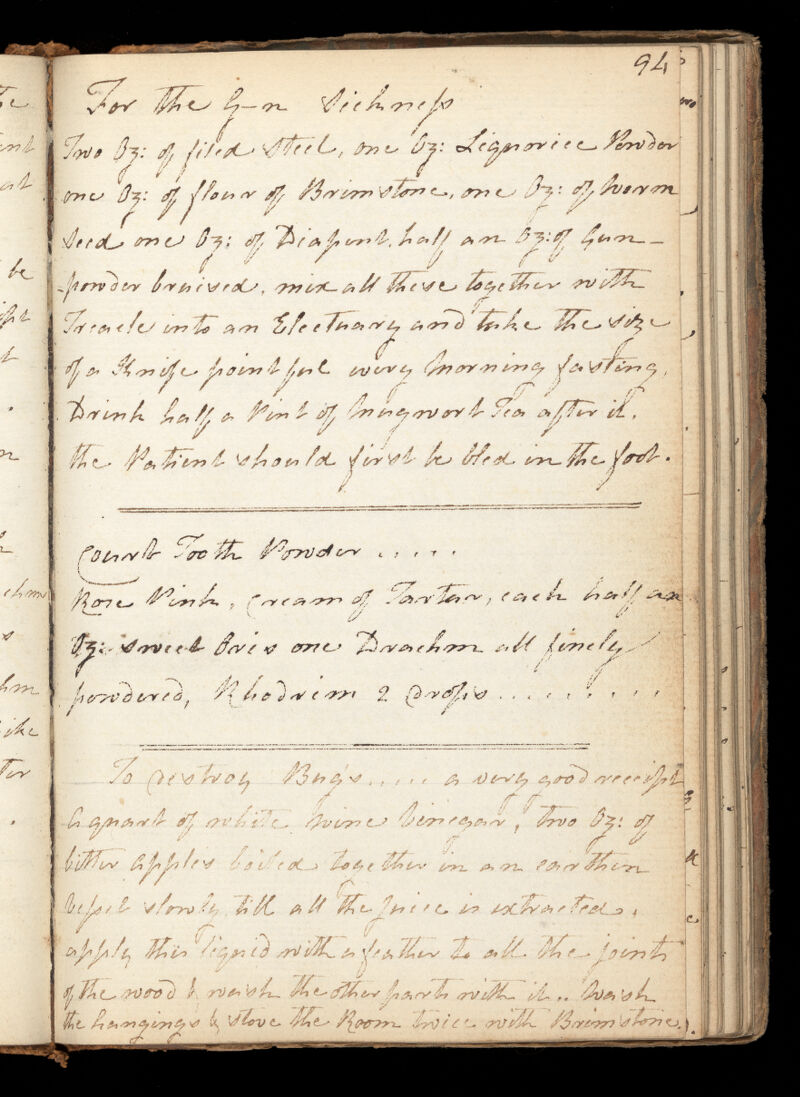 94
For the G-n Sickness
Two Oz: of filed Steel, one Oz: Liquorice Powder
one Oz: of flour of Brimstone, one Oz: of Worm
Seed one Oz: of Diapent, half an Oz: of Gun-
-powder bruised, mix all these together with
Treacle into an Electuary and take the size
of a Knife point ful every Morning fasting,
Drink half a Pint of Mugwort Tea after it.
the Patient should first be bled in the foot.
Court Tooth Powder .....
Rose Pink, Cream of Tartar, each half an
Oz: sweet Oris one Drachm all finely
powdered, Rhodrim 2 Drops .........
To Destroy Bugs..... a very good receipt
A quart of white Wine Vinegar, two Oz: of
bitter Apples boiled together in an earthen
Vessel slowly till all the juice is extracted.
apply this liquid with a feather to all the joints
of the wood & wash the other parts with it.. Wash
the hangings & stove the Room twice with Brimstone.